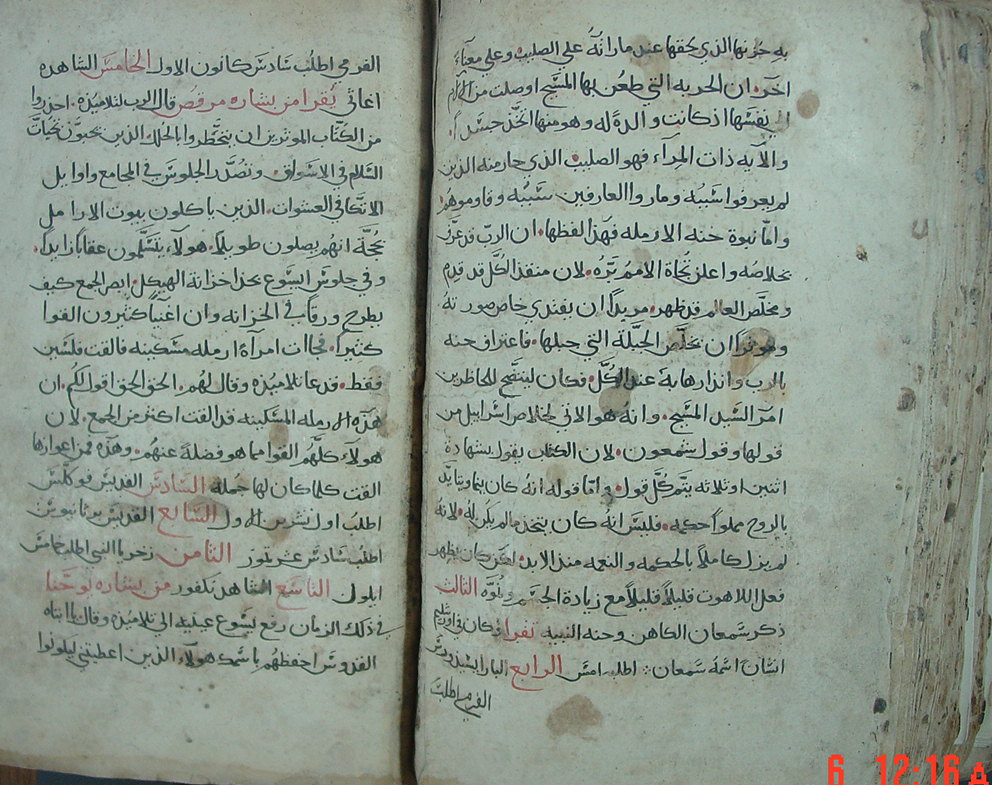 به حزنها الذي لحقها عند مارانه على الصليب وعلي معناً
آخر ان الحربه التي طعن بها المسيح اوصلت من الالام
الى نفسها اذ كانت والدة له وهو منها اتخذ جسداً
والايه ذات المراء فهو الصليب الذي حار منه الذين
لم يعرفوا سببه وماروا العارفين سببه وقاوموهم
واما نبوة حنه الارمله فهذا لفظها ان الرب قد عزّز
خلاصه واعلن نجاة الامم بره لان منقذ الكل قد قدم
ومخلص العالم قد ظهر مريداً ان يفتدي خاص صورته
وموثراً ان يخلص الجبلة التي جبلها فاعتراف حنه
بالرب وانذارها به عند الكل فكان ليتضح للحاظرين
امر السيد المسيح وانه هو الاتي لخلاص اسراييل من
قولها وقول شمعون لان الكتاب يقول بشهادة
اثنين او ثلاثه يتم كل قول واما قوله انه كان ينما ويتايد
بالروح مملواً حكمه فليس انه كان يتخذ ما لم يكن له لانه
لم يزل كاملاً بالحكمه والنعمه منذ الابد لكن كان يظهر
فعل اللاهوت قليلاً قليلاً مع زيادة الجسم ونموّه الثالث
ذكر سمعان الكاهن وحنه النبيه تقرا وكان في اورشليم
انسان اسمه سمعان اطلب امس الرابع البار ايسيذورس
الفرمي اطلب
الفرمي اطلب سادس كانون الاول الخامس الشاهده
اغاثي يقرا من بشاره مرقص قال الرب لتلاميذه احذروا
من الكتاب الموثرين ان يتخطروا بالحلل الذين يحبون تحيات
السلام في الاسواق وتصدر الجلوس في المجامع واوايل
الاتكا في العشوات الذين ياكلون بيوت الارامل
بحجة انهم يصلون طويلاً هولاء يتسلمون عقابا زايداً
وفي جلوس ايسوع بحذا خزانة الهيكل ابصر الجمع كيف
يطرح ورقا في الخزانه وان اغنياً كثيرون القوا
كثيراً فجاات امرآة ارمله مسكينه فالقت فلسين
فقط فدعا تلاميذه وقال لهم الحق الحق اقول لكم ان
هذه الارمله المسكينه قد القت اكثر من الجمع لان
هولاء كلهم القوا مما هو فضلة عنهم وهذه فمن اعوازها
القت كلما كان لها جمله السادس القديس فوكلس
اطلب اول تشرين الاول السابع القديس برثانيوس
اطلب سادس عشر تموز الثامن زخريا النبي اطلب خامس
ايلول التاسع الشاهد نيكفور من بشاره يوحنا
في ذلك الزمان رفع يسوع عينيه الى تلاميذه وقال يا ابتاه
القدوس احفظهم باسمك هولاء الذين اعطيتني ليكونوا
6 12:16